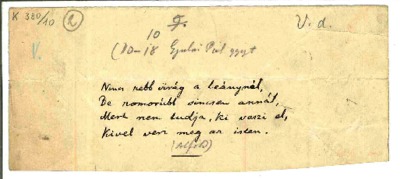 X 380/10 2 V. d.
10
V.
18 Gyulai Pál gyűjt
Nincs szebb virág a leánynál,
De szomorúbb sincsen annál,
Mert nem tudja, ki veszi el,
Kivel veri meg az isten.
(Alföld)